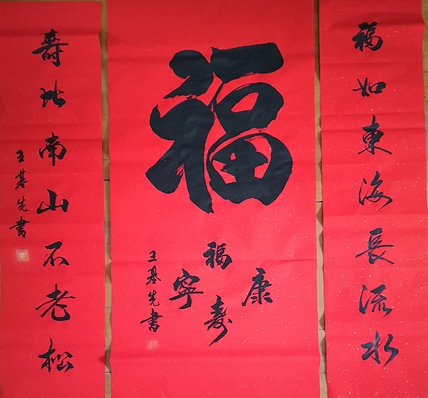 福如東海長流水
福
福寿康寧
王基先書
壽比南山不老松
王基先書